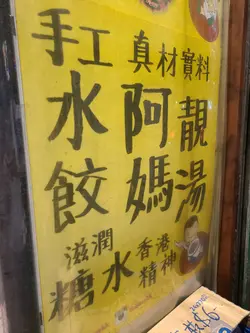 手工
水
餃
真材實料
阿媽
靚湯
滋潤
糖水
香港
精神